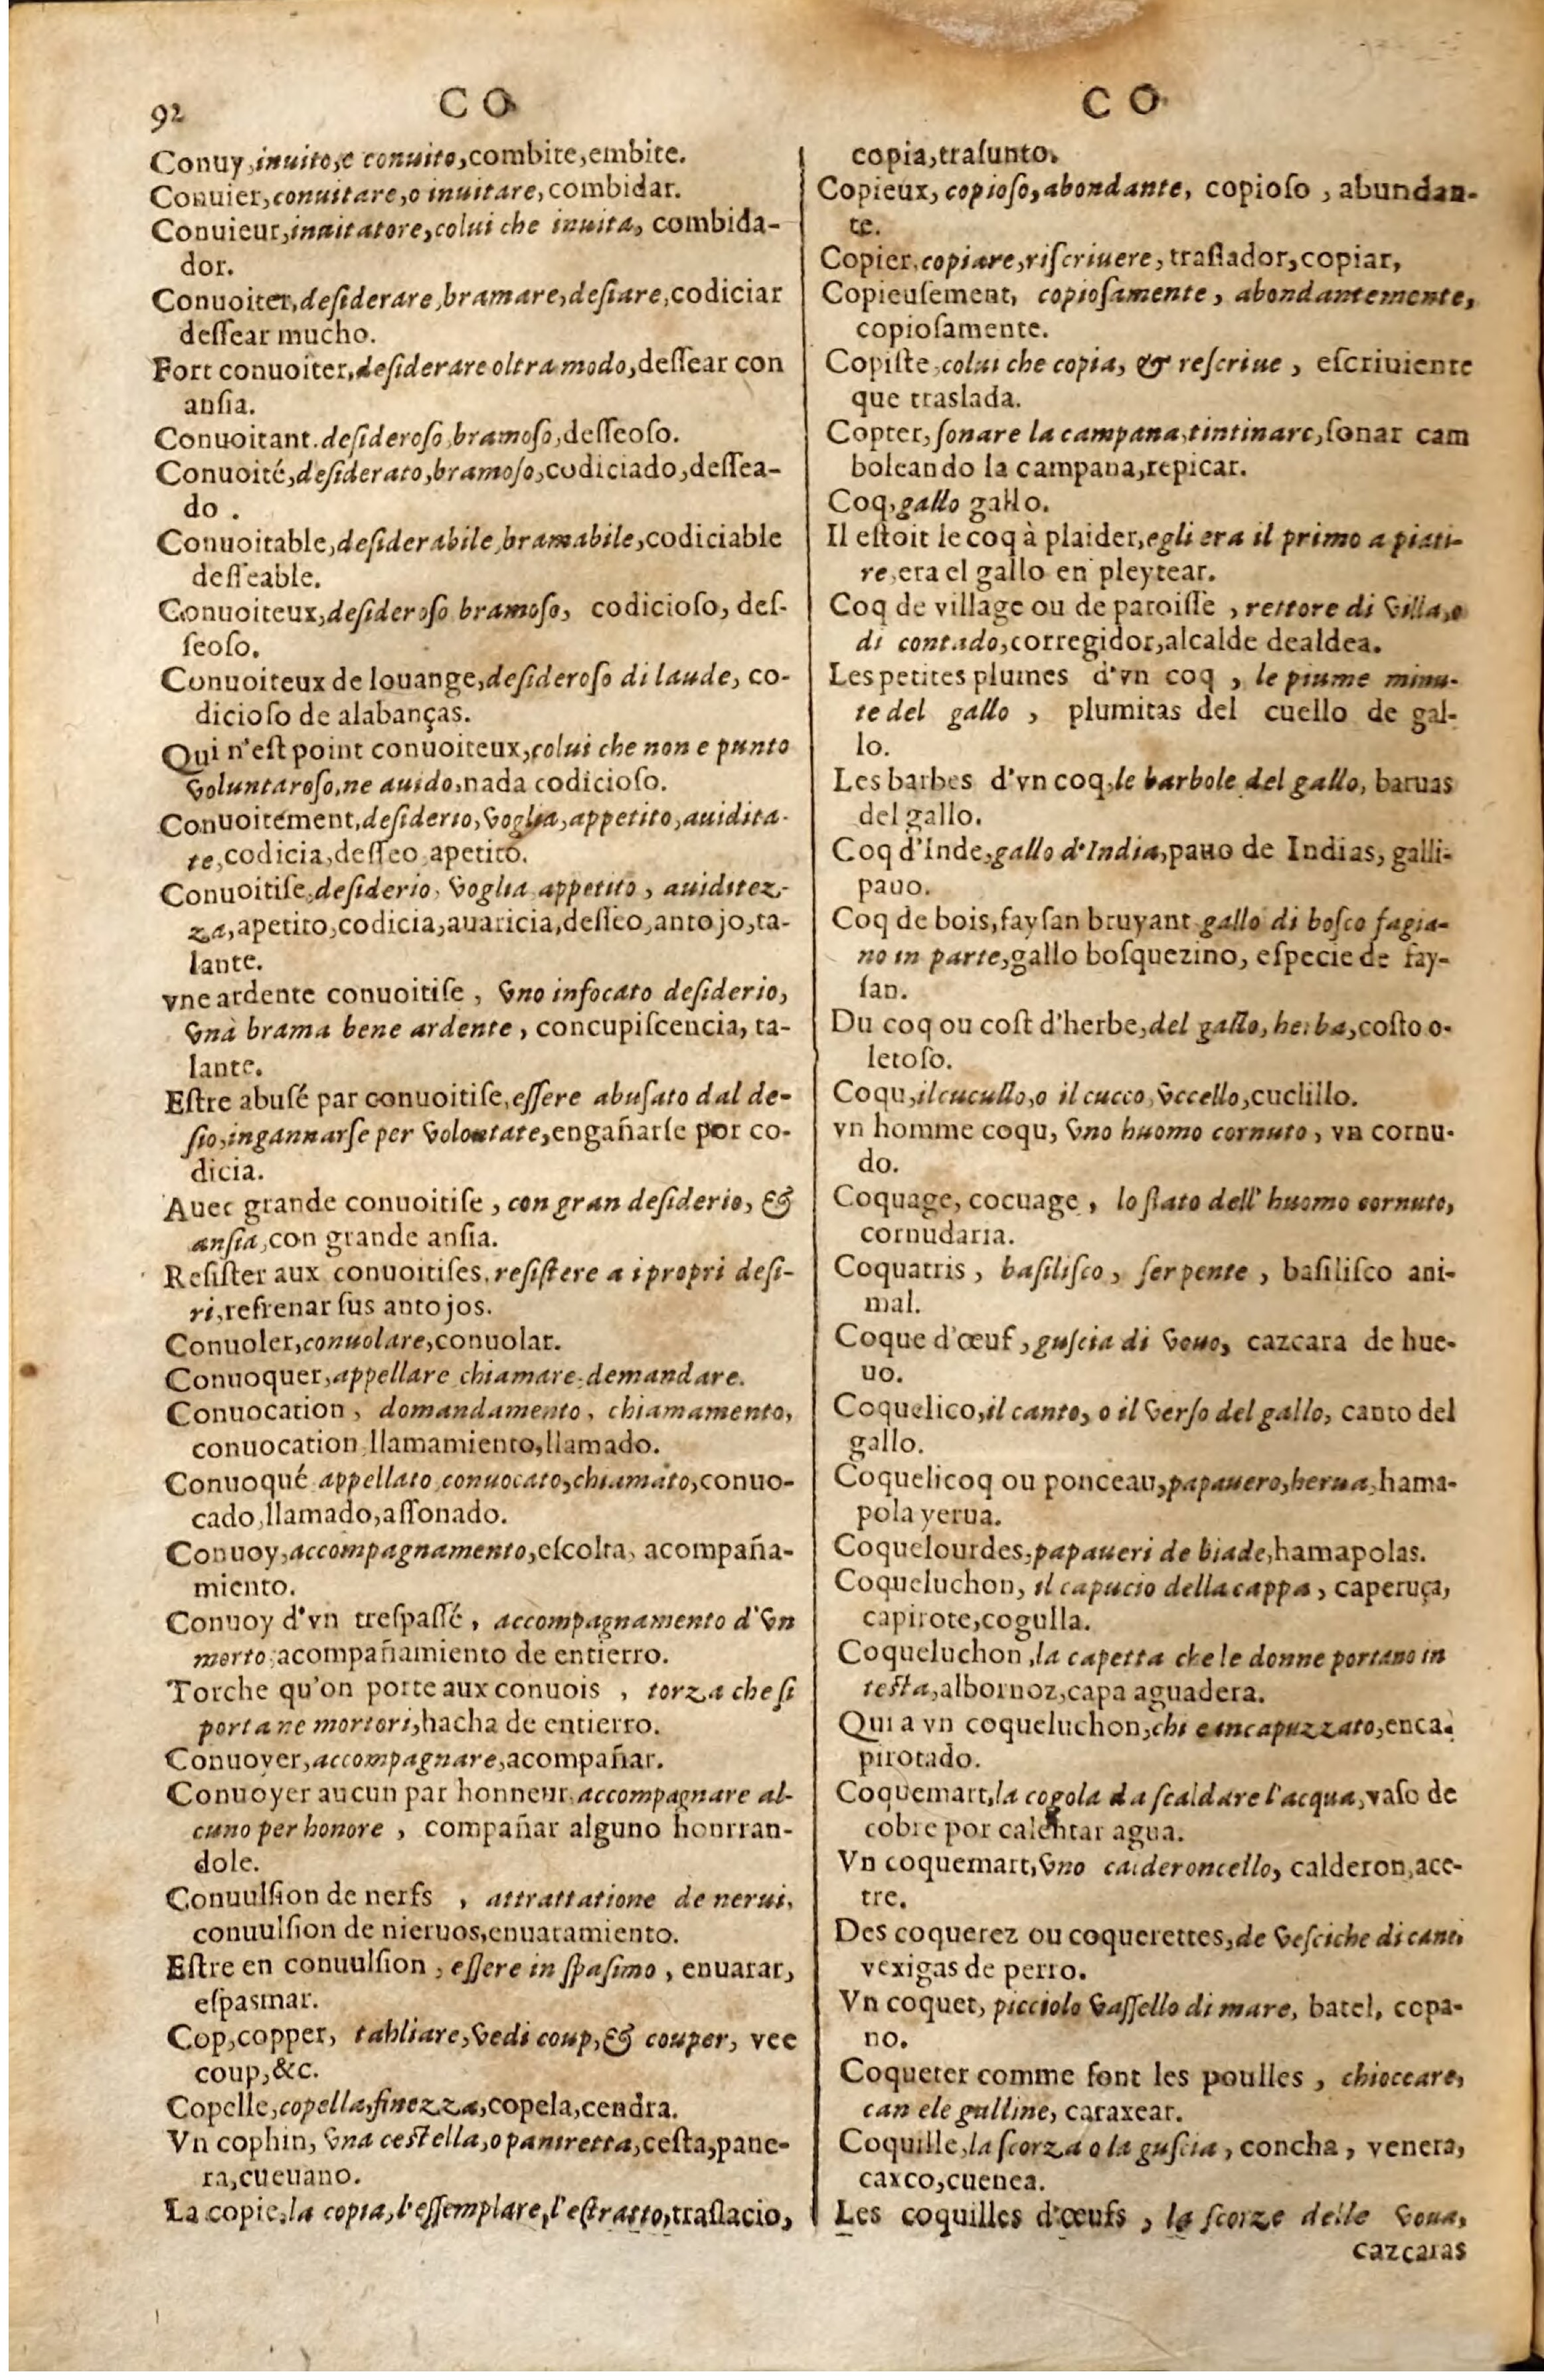 92
C O
C O
Conuy, inuito, e conuito, combite, embite.
Conuier, conuitare, o inuitare, combidar.
Conuieur, inuitatore, colui che inuita, combida-
dor.
Conuoiter, deſiderare, bramare, deſiare, codiciar
deſſear mucho.
Fort conuoiter, deſiderare oltra modo, deſſear con
anſia.
Conuoitant. deſideroſo, bramoſo, deſſeoſo.
Conuoité, deſiderato, bramoſo, codiciado, deſſea-
do .
Conuoitable, deſiderabile, bramabile, codiciable
deſſeable.
Conuoiteux, deſideroſo bramoſo, codicioſo, deſ-
ſeoſo.
Conuoiteux de louange, deſideroſo di laude, co-
dicioſo de alabanças.
Qui n'eſt point conuoiteux, colui che non e punto
voluntaroſo, ne auido, nada codicioſo.
Conuoitement, deſiderio, voglia, appetito, auidita-
te, codicia, deſſeo, apetito.
Conuoitiſe, deſiderio, voglia appetito, auiditez-
za, apetito, codicia, auaricia, deſſeo, antojo, ta-
lante.
vne ardente conuoitiſe, vno infocato deſiderio,
vnà brama bene ardente, concupiſcencia, ta-
lante.
Eſtre abuſé par conuoitiſe, eſſere abuſato dal de-
ſio, ingannarſe per volontate, engañarſe por co-
dicia.
Auec grande conuoitiſe, con gran deſiderio, &
anſia, con grande anſia.
Reſiſter aux conuoitiſes, reſiſtere a i propri deſi-
ri, refrenar ſus antojos.
Conuoler, conuolare, conuolar.
Conuoquer, appellare chiamare, demandare.
Conuocation, domandamento, chiamamento,
conuocation, llamamiento, llamado.
Conuoqué appellato conuocato, chiamato, conuo-
cado, llamado, aſſonado.
Conuoy, accompagnamento, eſcolta, acompaña-
miento.
Conuoy d'vn treſpaſſé, accompagnamento d'vn
morto, acompañamiento de entierro.
Torche qu'on porte aux conuois, torza che ſi
porta ne mortori, hacha de entierro.
Conuoyer, accompagnare, acompañar.
Conuoyer aucun par honneur, accompagnare al-
cuno per honore, compañar alguno honrran-
dole.
Conuulſion de nerfs, attrattatione de nerui,
conuulſion de nieruos, enuaramiento.
Eſtre en conuulſion, eſſere in ſpaſimo, enuarar,
eſpasmar.
Cop, copper, tahliare, vedi coup, & couper, vee
coup, &c.
Copelle, copella, finezza, copela, cendra.
Vn cophin, vna ceſtella, o paniretta, ceſta, pane-
ra, cueuano.
La copie, la copia, l'eſſemplare, l'eſtratto, traſlacio,
copia, traſunto.
Copieux, copioſo, abondante, copioſo, abundan-
te.
Copier, copiare, riſcriuere, traſlador, copiar,
Copieuſement, copioſamente, abondantemente,
copioſamente.
Copiſte, colui che copia, & reſcriue, eſcriuiente
que traslada.
Copter, ſonare la campana, tintinare, ſonar cam
boleando la campana, repicar.
Coq, gallo gallo.
Il eſtoit le coq à plaider, egli era il primo a piati-
re, era el gallo en pleytear.
Coq de village ou de paroiſſe, rettore di villa, o
di contado, corregidor, alcalde dealdea.
Les petites plumes d'vn coq, le piume minu-
te del gallo, plumitas del cuello de gal-
lo.
Les barbes d'vn coq, le barbole del gallo, baruas
del gallo.
Coq d'Inde, gallo d'India, pauo de Indias, galli-
pauo.
Coq de bois, fayſan bruyant gallo di boſco fagia-
no in parte, gallo boſquezino, eſpecie de fay-
ſan.
Du coq ou coſt d'herbe, del gallo, herba, coſto o-
letoſo.
Coqu, il cucullo, o il cucco, vccello, cuclillo.
vn homme coqu, vno huomo cornuto, vn cornu-
do.
Coquage, cocuage, lo ſtato dell' huomo cornuto,
cornudaria.
Coquatris, baſiliſco, ſerpente, baſiliſco ani-
mal.
Coque d'œuf, guſcia di vouo, cazcara de hue-
uo.
Coquelico, il canto, o il verſo del gallo, canto del
gallo.
Coquelicoq ou ponceau, papauero, herua, hama-
pola yerua.
Coquelourdes, papaueri de biade, hamapolas.
Coqueluchon, il capucio della cappa, caperuça,
capirote, cogulla.
Coqueluchon, la capetta che le donne portano in
teſta, albornoz, capa aguadera.
Qui a vn coqueluchon, chi e incapuzzato, enca-
pirotado.
Coquemart, la cogola da ſcaldare l'acqua, vaſo de
cobre por calentar agua.
Vn coquemart, vno calderoncello, calderon, ace-
tre.
Des coquerez ou coquerettes, de veſciche di cane,
vexigas de perro.
Vn coquet, picciolo vaſſello di mare, batel, copa-
no.
Coqueter comme font les poulles, chioccare,
can ele galline, caraxear.
Coquille, la ſcorza o la guſcia, concha, venera,
caxco, cuenea.
Les coquilles d'œufs, la ſcorze delle voua,
cazcaras